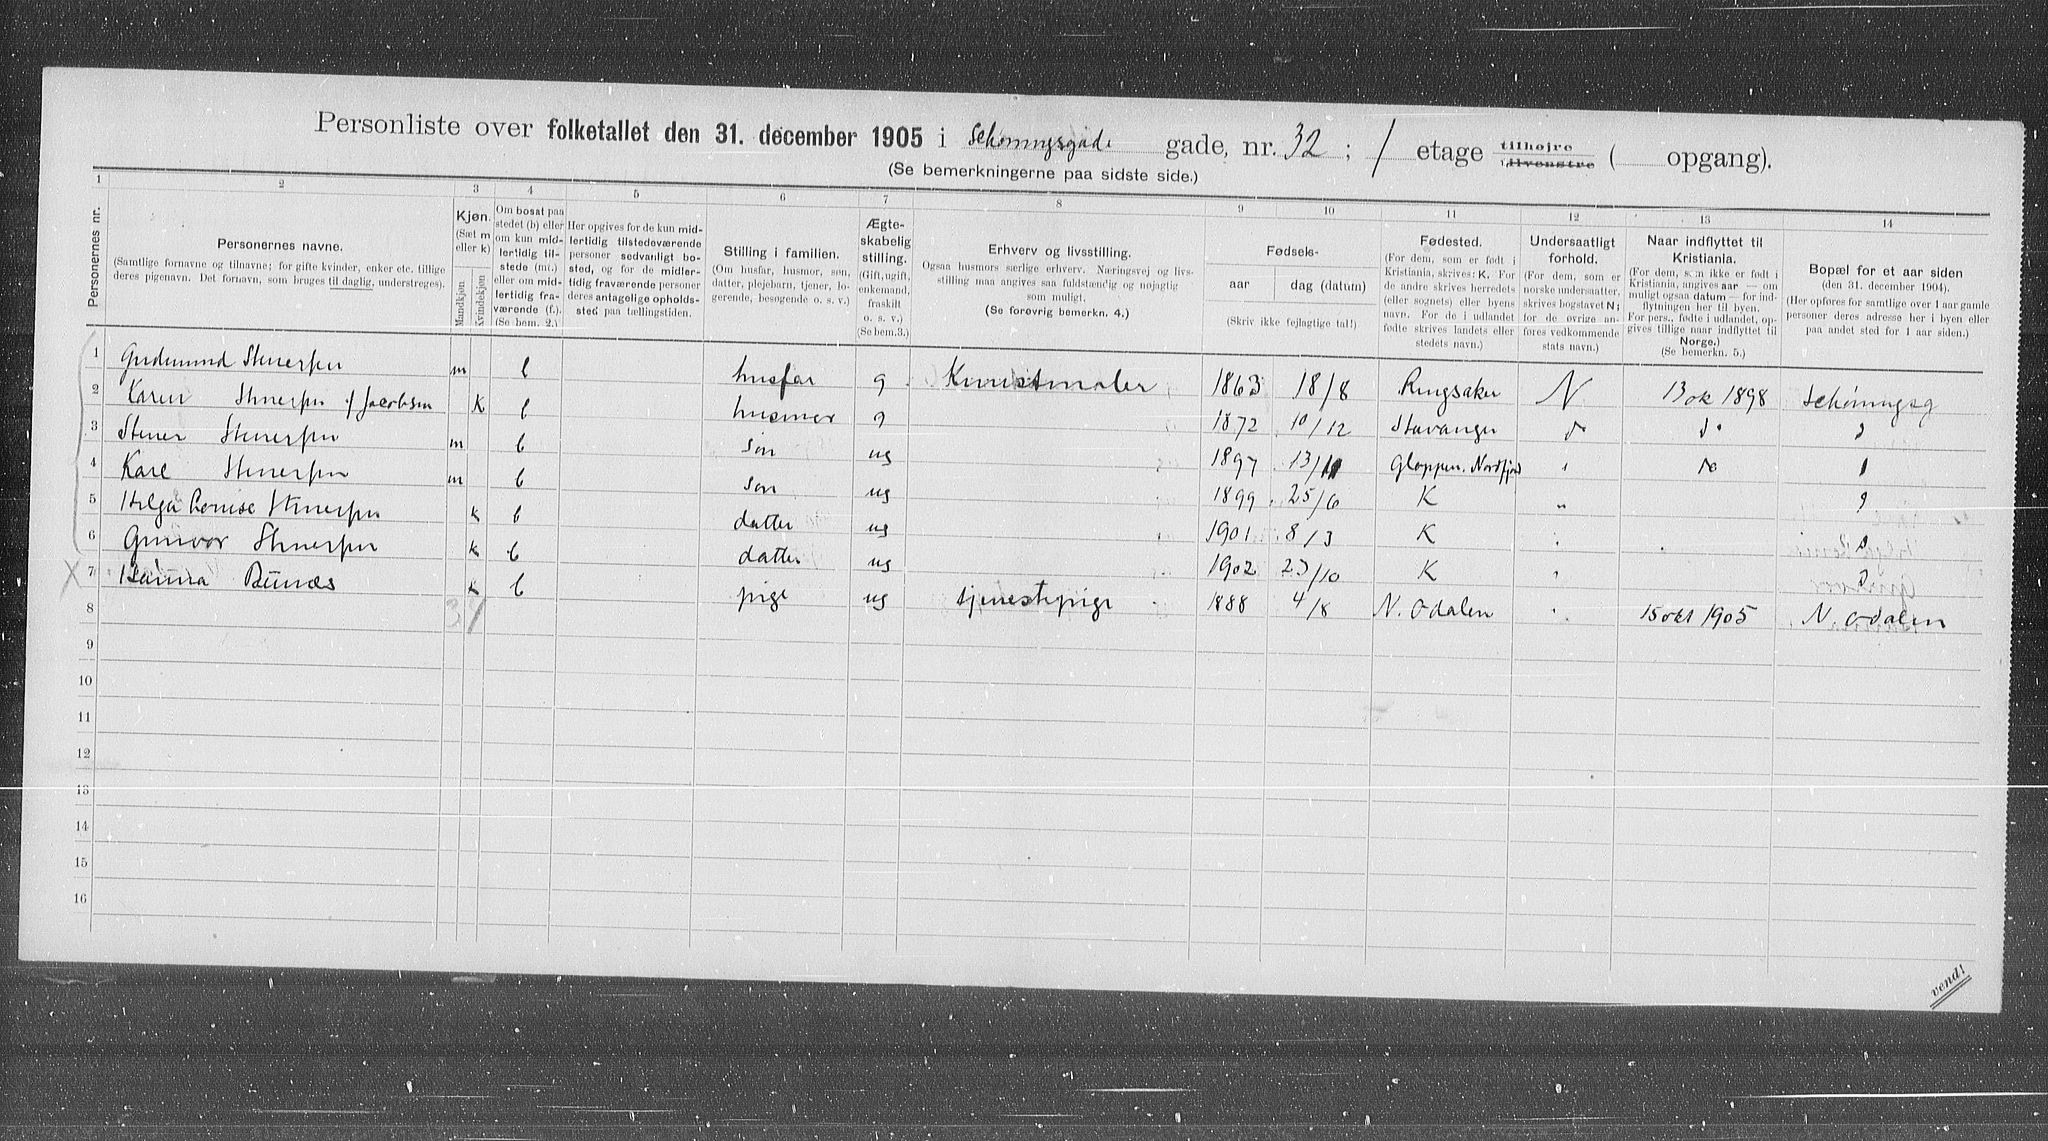 Personliste over folketallet den 31. december 1905 i Schøningsgade gade, nr. 32; 1 etage tilhøjre tilvenstre ( opgang).
(Se bemerkningerne paa sidste side.)
1 2 3 4 5 6 7 8 9 10 11 12 13 14
Personernes nr.
Personernes navne.
(Samtlige fornavne og tilnavne; for gifte kvinder, enker etc. tillige
deres pigenavn. Det fornavn, som bruges til daglig, understreges).
Kjøn.
(Sæt m
eller k)
Mandkjøn.
Kvindekjøn.
Om bosat paa
stedet (b) eller
om kun mid-
lertidig til-
stede (mt.)
eller om mid-
lertidig fra-
værende (f.).
(Se bem. 2.)
Her opgives for de kun mid-
lertidig tilstedeværende
personer sedvanligt bo-
sted, og for de midler-
tidig fraværende personer
deres antagelige opholds-
sted paa tællingstiden.
Stilling i familien.
(Om husfar, husmor, søn,
datter, plejebarn, tjener, lo-
gerende, besøgende o. s. v.)
Ægte-
skabelig
stilling.
(Gift, ugift,
enkemand,
fraskilt
o. s. v.)
(Se bem.3.)
Erhverv og livsstilling.
Ogsaa husmors særlige erhverv. Næringsvej og livs-
stilling maa angives saa fuldstændig og nøjagtig
som muligt.
(Se forøvrig bemerkn. 4.)
Fødsels-
aar dag (datum)
(Skriv ikke fejlagtige tal!)
Fødested.
(For dem, som er født i
Kristiania, skrives: K. For
de andre skrives herredets
(eller sognets) eller byens
navn. For de i udlandet
fødte skrives landets eller
stedets navn.)
Undersaatligt
forhold.
(For dem, som er
norske undersaatter,
skrives bogstavet N;
for de øvrige an-
føres vedkommende
stats navn.)
Naar indflyttet til
Kristiania.
(For dem, som ikke er født i
Kristiania, angives aar — om
muligt ogsaa datum — for ind-
flytningen her til byen.
For pers., fødte i udlandet, op-
gives tillige naar indflyttet til
Norge.)
(Se bemerkn. 5.)
Bopæl for et aar siden
(den 31. december 1904).
(Her opføres for samtlige over 1 aar gamle
personer deres adresse her i byen eller
paa andet sted for 1 aar siden.)
1 Gudmund Stenersen m b husfar g Kunstmaler 1863 18/8 Ringsaker N 13 ok 1898 Schøningsg
2 Karen Stenersen f Jacobsen K b husmor g 1872 10/12 Stavanger do do do
3 Stener Stenersen m b søn ug 1897 13/11 Gloppen. Nordfjord " do "
4 Karl Stenersen m b søn ug 1899 25/6 K " "
5 Helga Louise Stenersen k b datter ug 1901 8/3 K " "
6 Gunvor Stenersen k b datter ug 1902 23/10 K " "
X 7 Bünæs k b pige ug tjenestepige 1888 4/8 N. Odalen " 15 okt 1905 N. Odalen
8
9
10
11
12
13
14
15
16
vend!